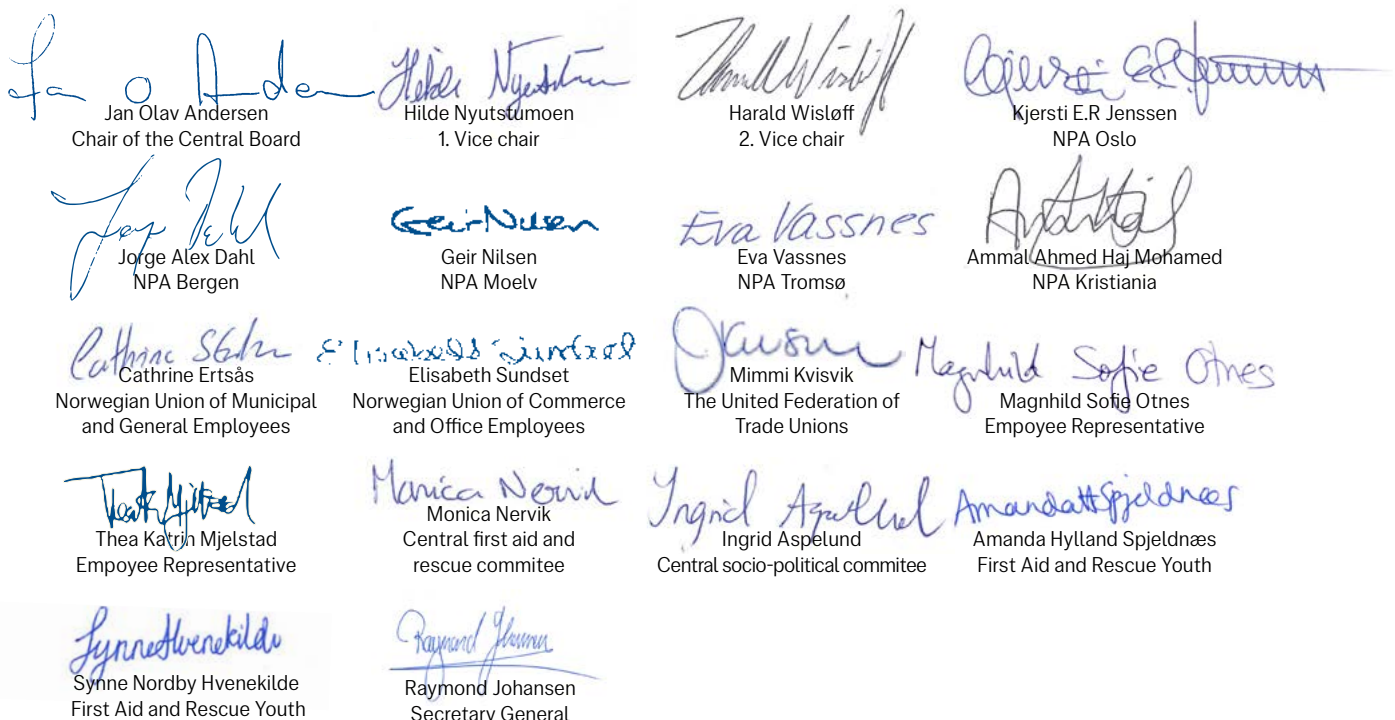 Jan O Andersen
Jan Olav Andersen
Chair of the Central Board
Hilde Nyutstumoen
Hilde Nyutstumoen
1. Vice chair
Harald Wisløff
2. Vice chair
Kjersti E.R Jenssen
NPA Oslo
Jorge Alex Dahl
NPA Bergen
Geir Nilsen
Geir Nilsen
NPA Moelv
Eva Vassnes
Eva Vassnes
NPA Tromsø
Ammal Ahmed Haj Mohamed
NPA Kristiania
Cathrine Ertsås
Norwegian Union of Municipal
and General Employees
Elisabeth Sundset
Norwegian Union of Commerce
and Office Employees
Mimmi Kvisvik
The United Federation of
Trade Unions
Magnhild Sofie Otnes
Magnhild Sofie Otnes
Empoyee Representative
Thea Katrin Mjelstad
Empoyee Representative
Monica Nervik
Monica Nervik
Central first aid and
rescue commitee
Ingrid Aspelund
Ingrid Aspelund
Central socio-political commitee
Amanda H Spjeldnæs
Amanda Hylland Spjeldnæs
First Aid and Rescue Youth
Synne Hvenekilde
Synne Nordby Hvenekilde
First Aid and Rescue Youth
Raymond Johansen
Raymond Johansen
Secretary General